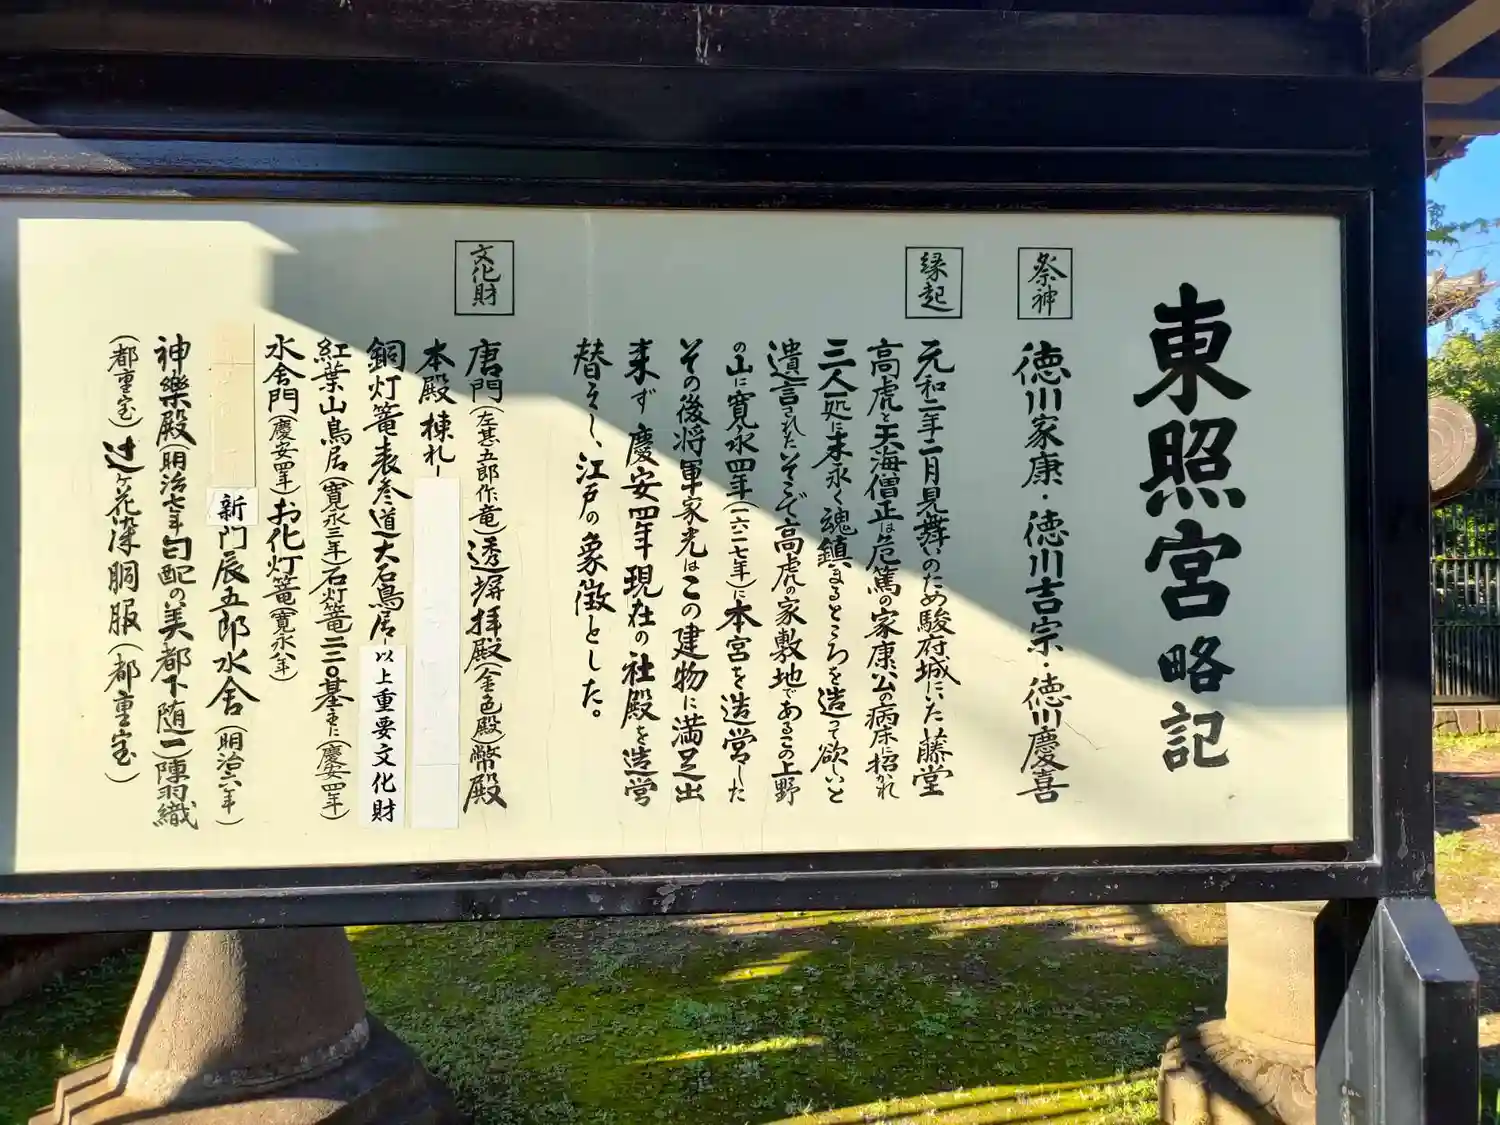 東照宮略記
祭神
徳川家康・徳川吉宗・徳川慶喜
縁起
元和二年二月見舞いのため駿府城にいた藤堂
高虎と天海僧正は危篤の家康公の病床に招かれ
三人一処に末永く魂鎮まるところを造って欲しいと
遺言されたいそこで高虎の家敷地であるこの上野
の山に寛永四年(一六二七年)に本宮を造営した
その後将軍家光はこの建物に満足出
来ず慶安四年現在の社殿を造営
替えし、江戸の象徴とした。
文化財
唐門(左甚五郎作竜)透塀拝殿(金色殿)幣殿
本殿棟札一
銅灯篭表参道大石鳥居以上重要文化財
紅葉山鳥居(寛永三年)石灯篭二二〇基
(慶安四年)
水舎門(慶安四年)お化灯篭(寛永八年)
新門辰五郎水舎(明治六年)
神樂殿(明治七年勾配の美都下随一)陣羽織
(都重宝)辻ヶ花染胴服(都重宝)